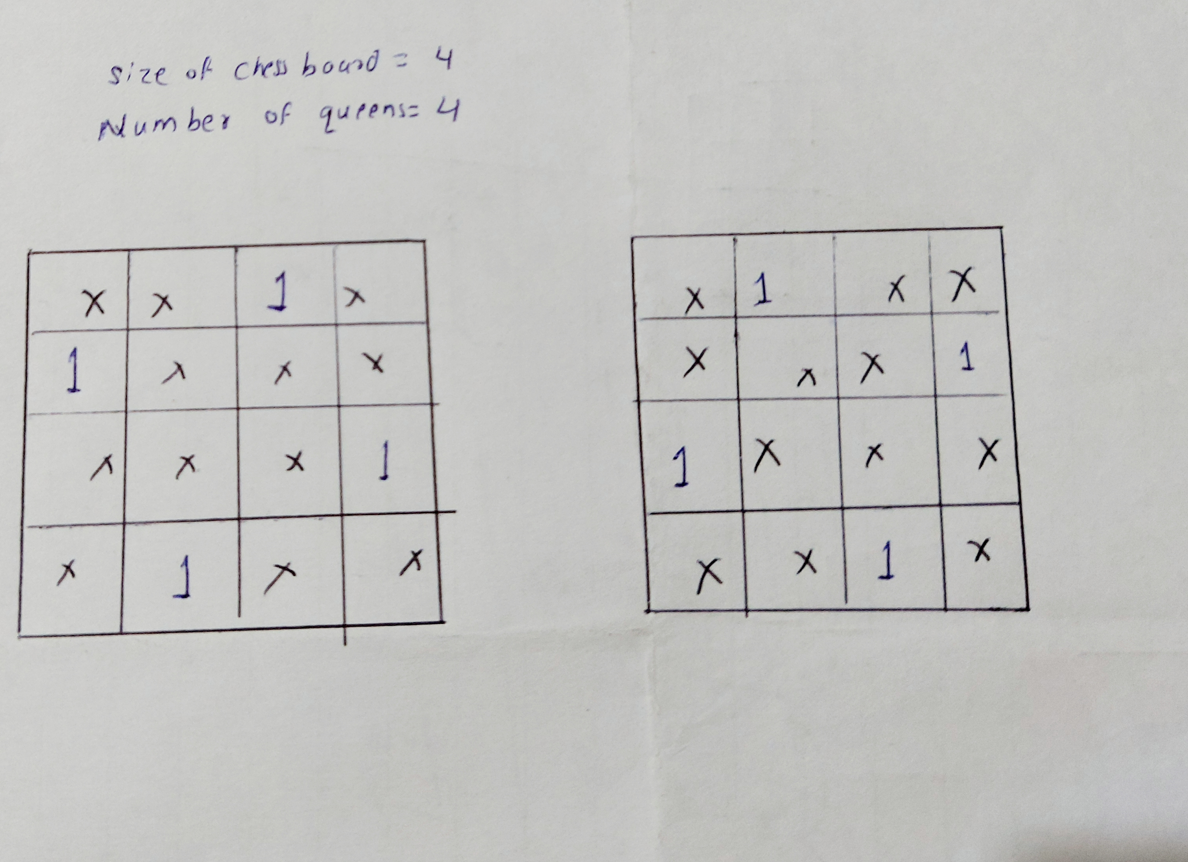 Size of chess board = 4
Number of queens = 4
x x 1 x
1 x x x
x x x 1
x 1 x x
x 1 x x
x x x 1
1 x x x
x x 1 x